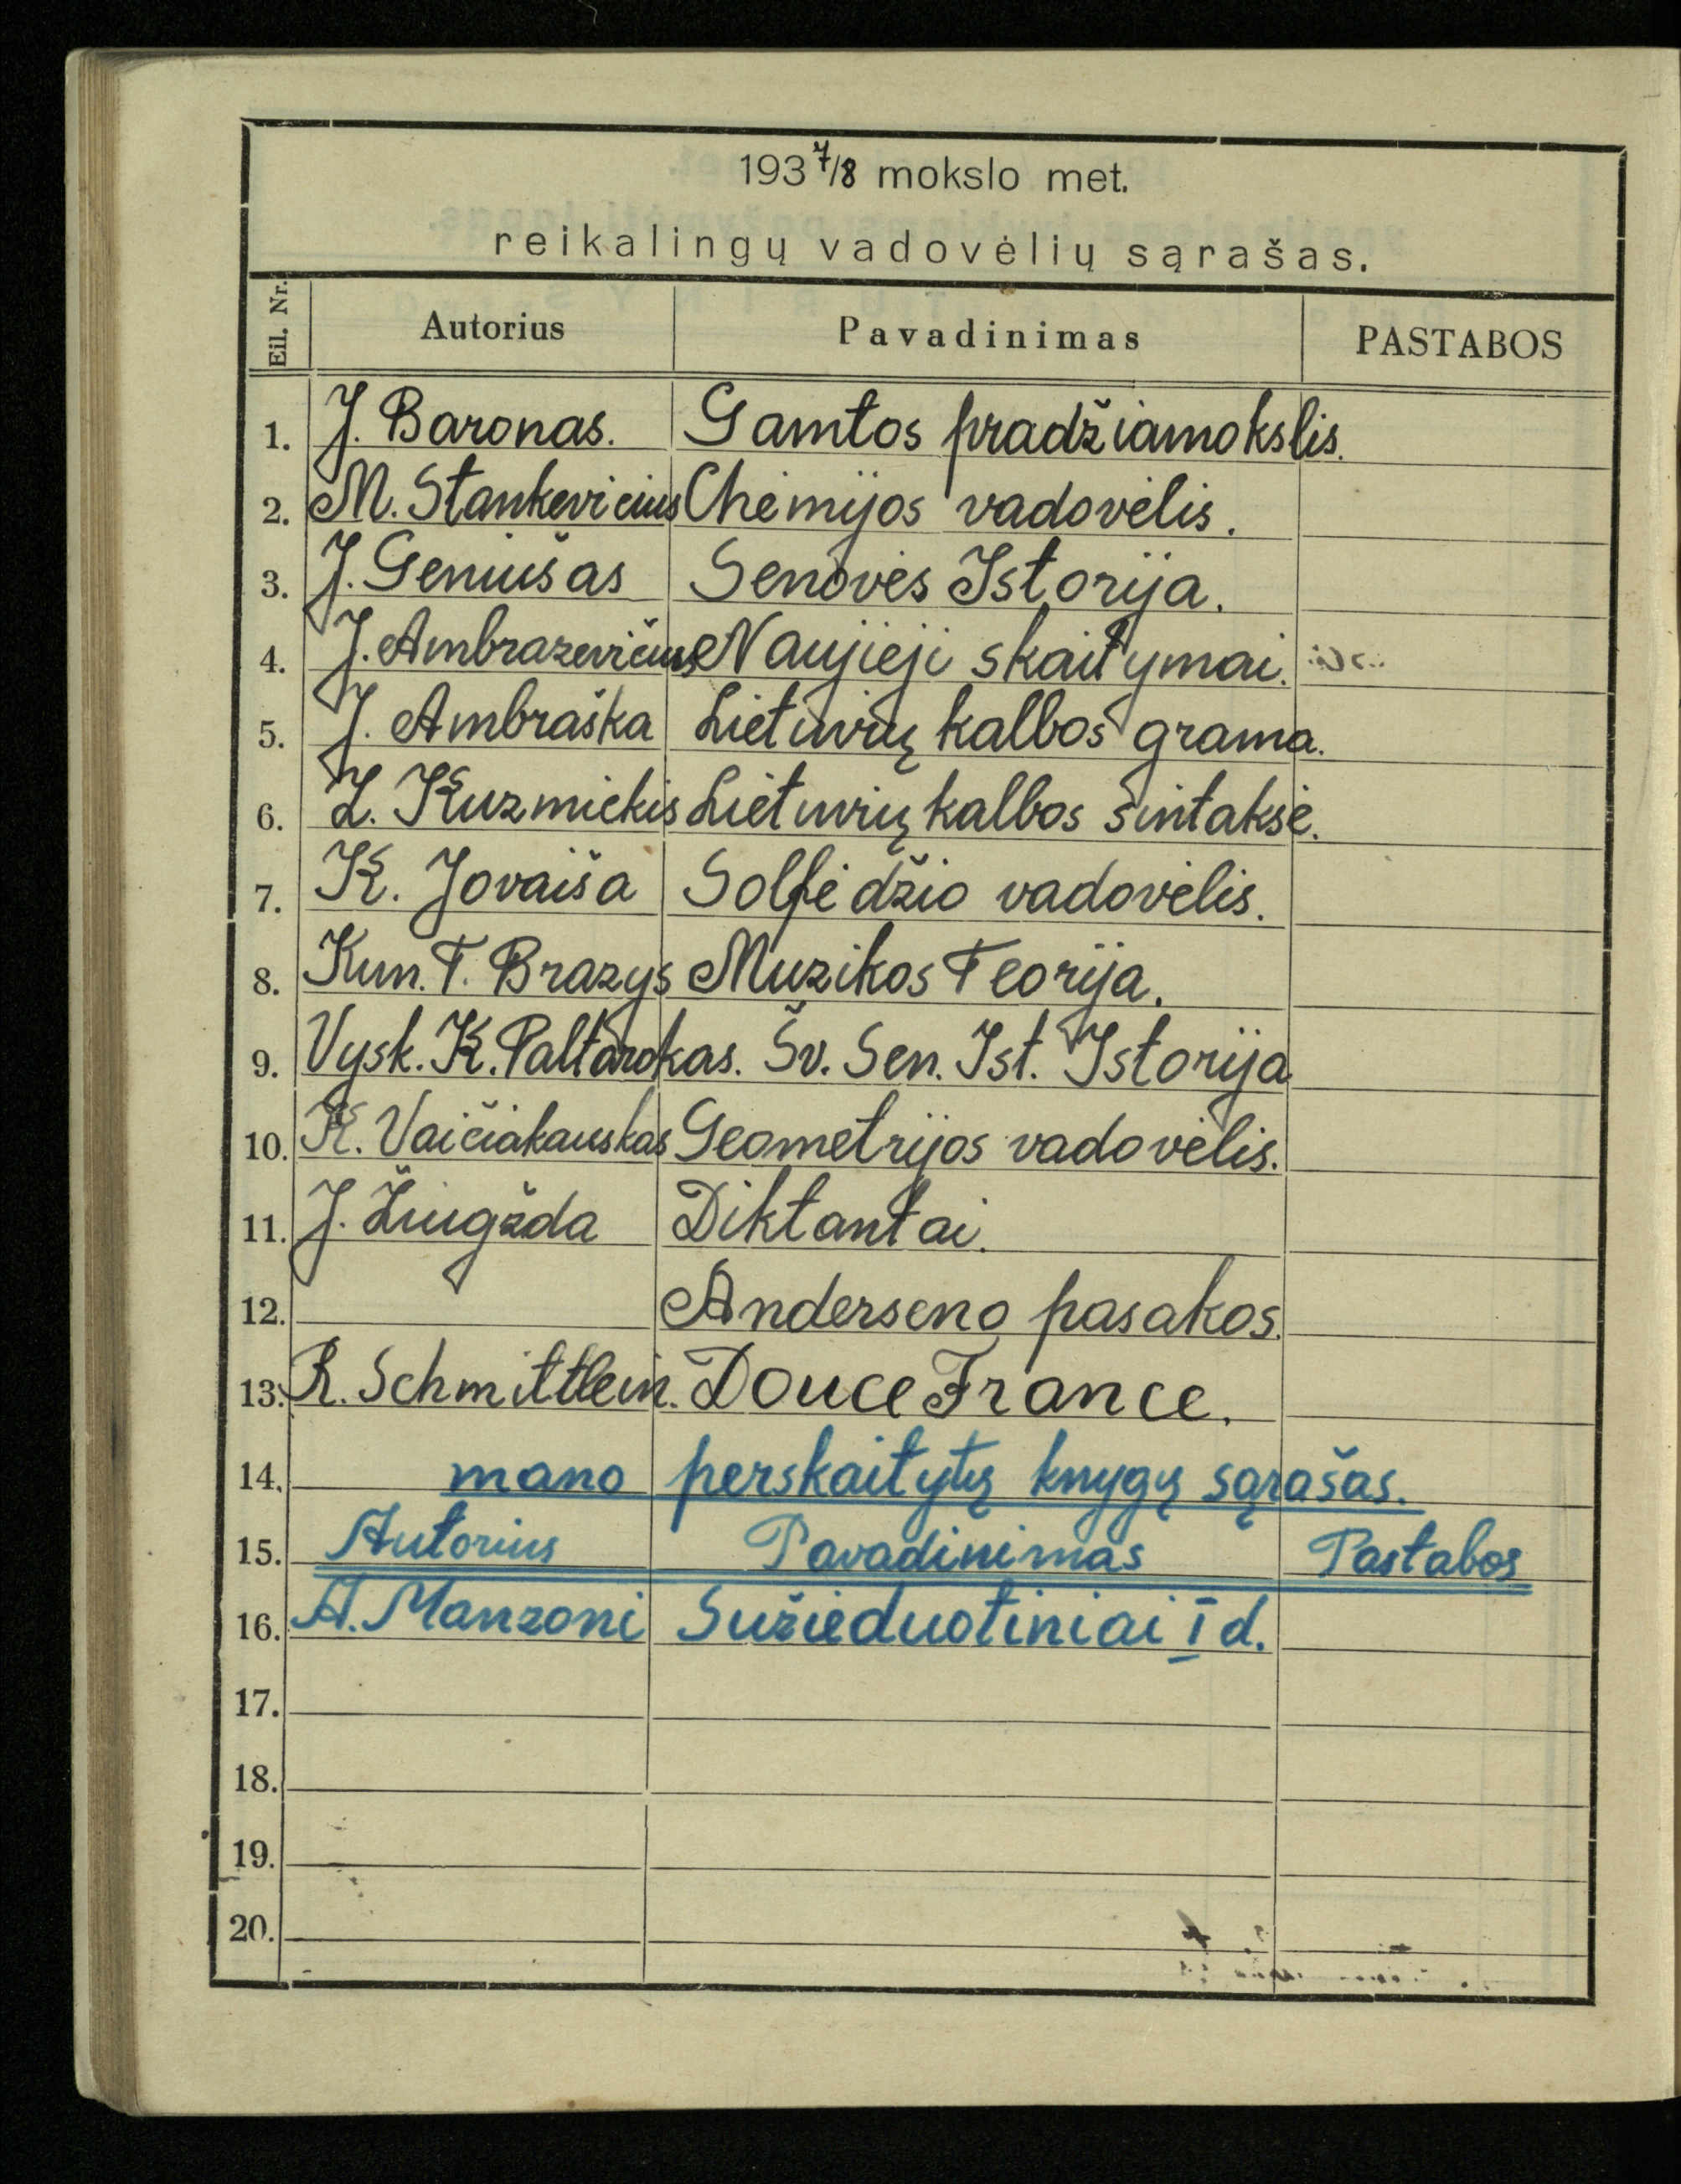 1937/8 mokslo met.
reikalingų vadovėlių sąrašas.
Eil. Nr. Autorius Pavadinimas PASTABOS
1. J. Baronas. Gamtos pradžiamokslis.
2. M. Stankevicius Chemijos vadovėlis.
3. J. Geniušas Senovės Istorija.
4. J. Ambrazevičius Naujieji skaitymai.
5. J. Ambraška Lietuvių kalbos grama.
6. L. Kuzmickis Lietuvių kalbos sintaksė.
7. K. Jovaiša Solfedžio vadovėlis.
8. Kun. T. Brazys Muzikos Teorija.
9. Vysk. K. Paltarokas. Šv. Sen. Ist. Istorija
10. K. Vaičiakauskas Geometrijos vadovėlis.
11. J. Žiugžda Diktantai.
12. Anderseno pasakos.
13. R. Schmittlein. Douce France.
14. mano perskaitytų knygų sąrašas.
15. Autorius Pavadinimas Pastabos
16. A. Manzoni Sužieduotiniai I d.
17.
18.
19.
20.